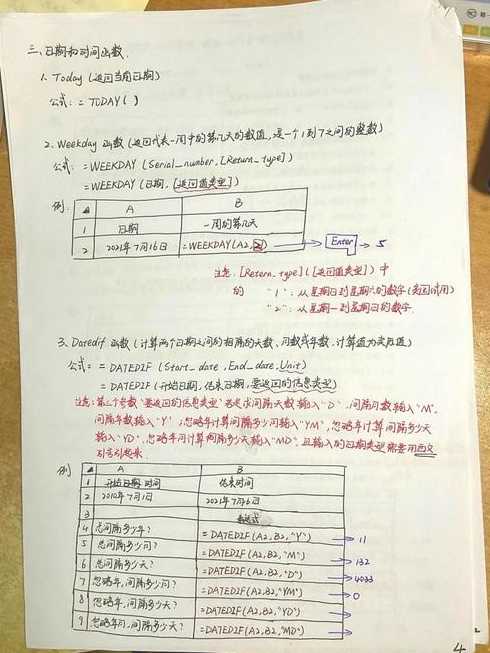 三、日期和时间函数.
1. Today (返回当前日期)
公式: = TODAY( )
2. Weekday 函数 (返回代表一周中的第几天的数值,是一个1到7之间的整数)
公式: =WEEKDAY (Serial_number, [Return_type])
=WEEKDAY (日期, [返回值类型])
例: A B
1 日期 一周的第几天
2 2021年7月16日 =WEEKDAY(A2,2) Enter 5
注意: [Return_type] ([返回值类型]) 中
的 "1": 从星期日到星期六的数字
"2": 从星期一到星期日的数字.
3. Datedif 函数 (计算两个日期之间的相隔的天数、月数或年数,计算值为实际值)
公式: = DATEDIF (Start_date, End_date, Unit)
= DATEDIF (开始日期, 结束日期, 要返回的信息类型)
注意: 第三个参数"要返回的信息类型"若是求间隔天数输入"D",间隔月数输入"M",
间隔年数输入"Y";忽略年计算间隔多少月输入"YM",忽略年计算间隔多少天
输入"YD",忽略年月计算间隔多少天输入"MD",且输入的日期类型需要用西文
引号引起来
例 A B
1 开始时间 结束时间
2 2010年7月1日 2021年7月16日
3 表达式
4 总间隔多少年? = DATEDIF (A2,B2,"Y") 11
5 总间隔多少月? = DATEDIF (A2,B2,"M") 132
6 总间隔多少天? = DATEDIF (A2,B2,"D") 4033
7 忽略年,间隔多少月? = DATEDIF (A2,B2,"YM") 0
8 忽略年,间隔多少天? =DATEDIF (A2,B2,"YD")
9 忽略年月,间隔多少天? =DATEDIF (A2,B2,"MD")
4